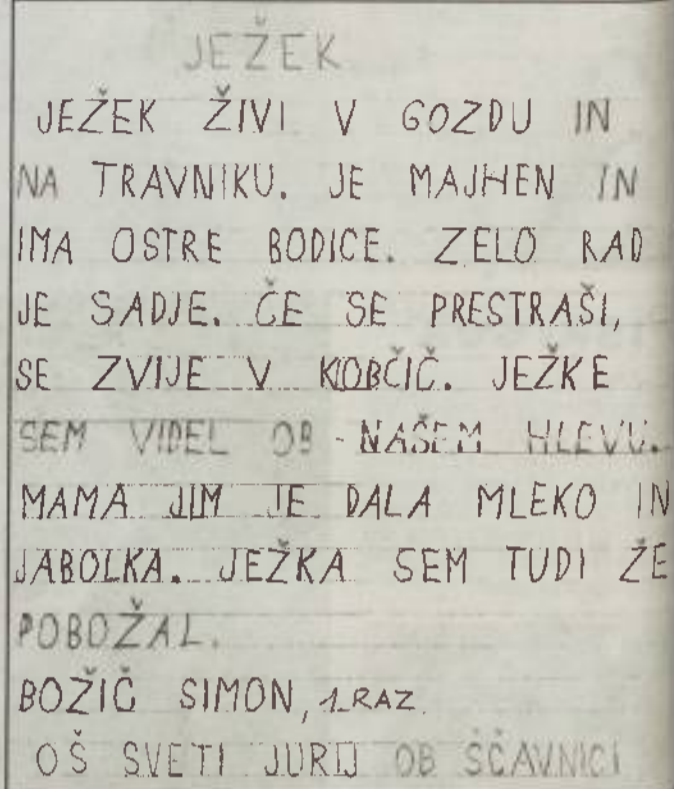 JEŽEK
JEŽEK ŽIVI V GOZDU IN
NA TRAVNIKU. JE MAJHEN IN
IMA OSTRE BODICE. ZELO RAD
JE SADJE. ČE SE PRESTRAŠI,
SE ZVIJE V KOBČIČ. JEŽKE
SEM VIDEL OB NAŠEM HLEVU.
MAMA JIM JE DALA MLEKO IN
JABOLKA. JEŽKA SEM TUDI ŽE
POBOŽAL.
BOŽIČ SIMON, 1. RAZ.
OŠ SVETI JURIJ OB ŠČAVNICI